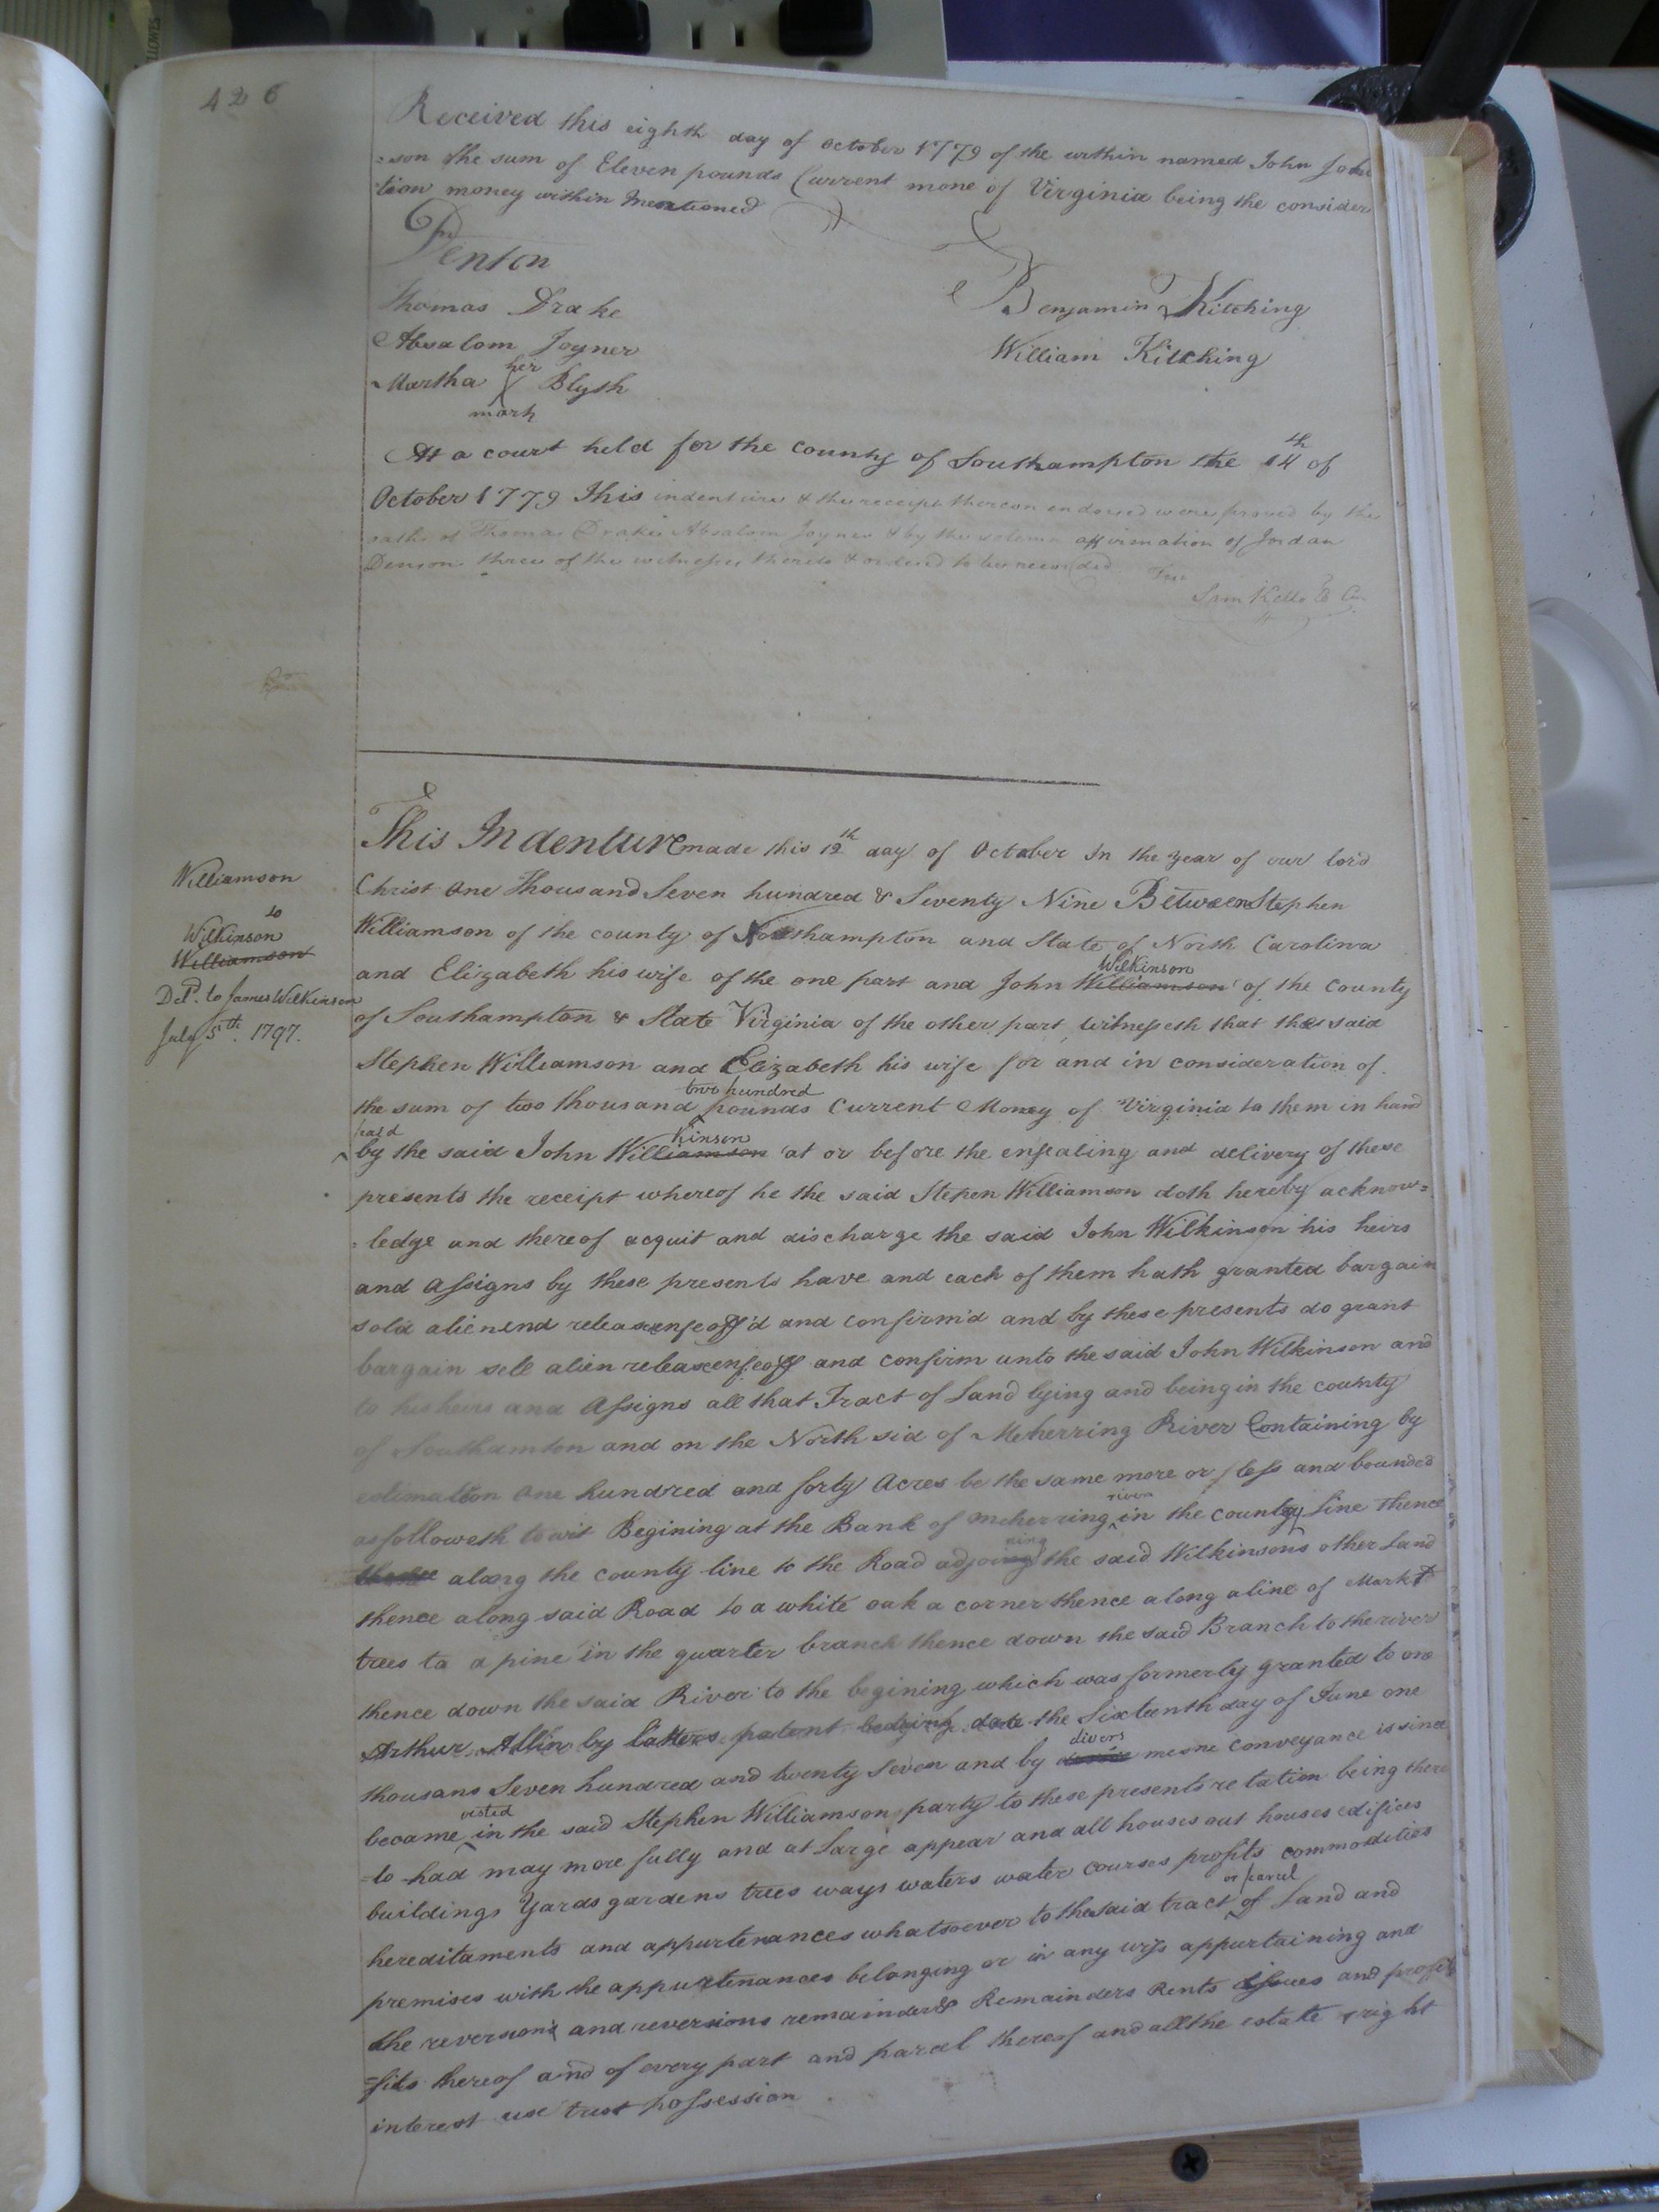 426
Received this eighth day of October 1779 of the within named John John
=son the sum of Eleven pounds Current mone of Virginia being the consider
tion money within Mentioned
Denton
Thomas Drake
Benjamin Kitching
Absalom Joyner
William Kitching
her
Martha X Blyth
mark
At a court held for the county of Southampton the 14th of
October 1779 This indenture & the receipt thereon endorsed were proved by the
oaths of Thomas Drake Absalom Joyner & by the solemn affirmation of Jordan
Denson three of the witnesses thereto & ordered to be recorded
Sam Kello
This Indenture made this 12th day of October In the year of our lord
Williamson
Christ One Thousand Seven hundred & Seventy Nine Between Stephen
to
Wilkinson
Williamson
Williamson of the county of Northampton and State of North Carolina
Wilkinson
and Elizabeth his wife of the one part and John Williamson of the County
Deld. to James Wilkinson
July 5th. 1797.
of Southampton & State Virginia of the other part, witnesseth that the said
Stephen Williamson and Elizabeth his wife for and in consideration of
two hundred
the sum of two thousand pounds Current Money of Virginia to them in hand
paid kinson
by the said John Williamson at or before the ensealing and delivery of these
presents the receipt whereof he the said Stepen Williamson doth hereby acknow=
=ledge and thereof acquit and discharge the said John Wilkinson his heirs
and Assigns by these presents have and each of them hath granted bargain
sold alienend releas enfeoff'd and confirm'd and by these presents do grant
bargain sell alien release enfeoff and confirm unto the said John Wilkinson and
to his heirs and Assigns all that Tract of Land lying and being in the county
of Southamton and on the North sid of Meherring River Containing by
estimation One hundred and forty Acres be the same more or less and bounded
river
as followeth towit Begining at the Bank of Meherring in the county line thence
ning
thence along the county line to the Road adjoing the said Wilkinsons other Land
thence along said Road to a white oak a corner thence along a line of Markt
trees to a pine in the quarter branch thence down the said Branch to the river
thence down the said River to the begining which was formerly granted to one
Arthur Allin by latters patent bearing date the Sixteenth day of June one
divers
thousans Seven hundred and twenty Seven and by mesne conveyance is since
visted
became in the said Stephen Williamson party to these presents retation being there
=to had may more fully and at Large appear and all houses out houses edifices
buildings Yards gardens trees ways waters water courses profits commodities
or parcel
hereditaments and appurtenances whatsoever to the said tract of Land and
premises with the appurtenances belonging or in any wise appurtaining and
the reversions and reversions remainder & Remainders Rents Issues and profit
=fits thereof and of every part and parcel thereof and all the estate right
interest use trust possession